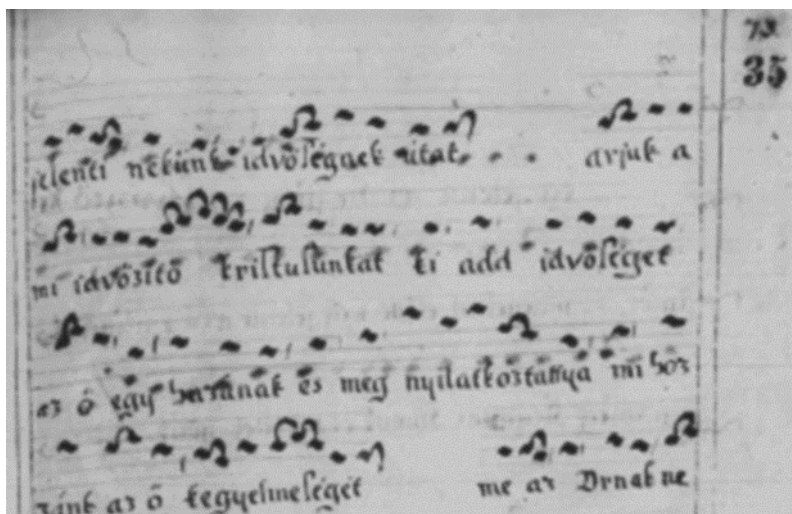 73
35
jelenti nekünk idvösegnek útat, arjuk a
mi idvözitö kristusunkat ki add idvöseget
az ö egy hazanak es meg nyilatkoztattya mi hoz
zánk az ö kegyelmeseget me az Urnak ne